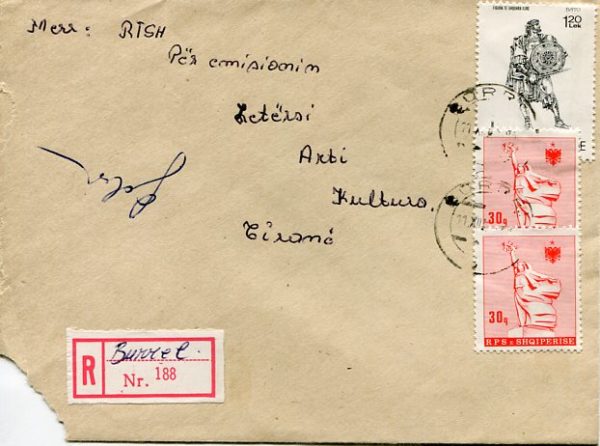 Merr: RTSH
Për emisionin
Letërsi
Arti
Kultura.
Tiranë
1.20
Lek
30q
30q
RPS e SHQIPERISE
R Burrel.
Nr. 188